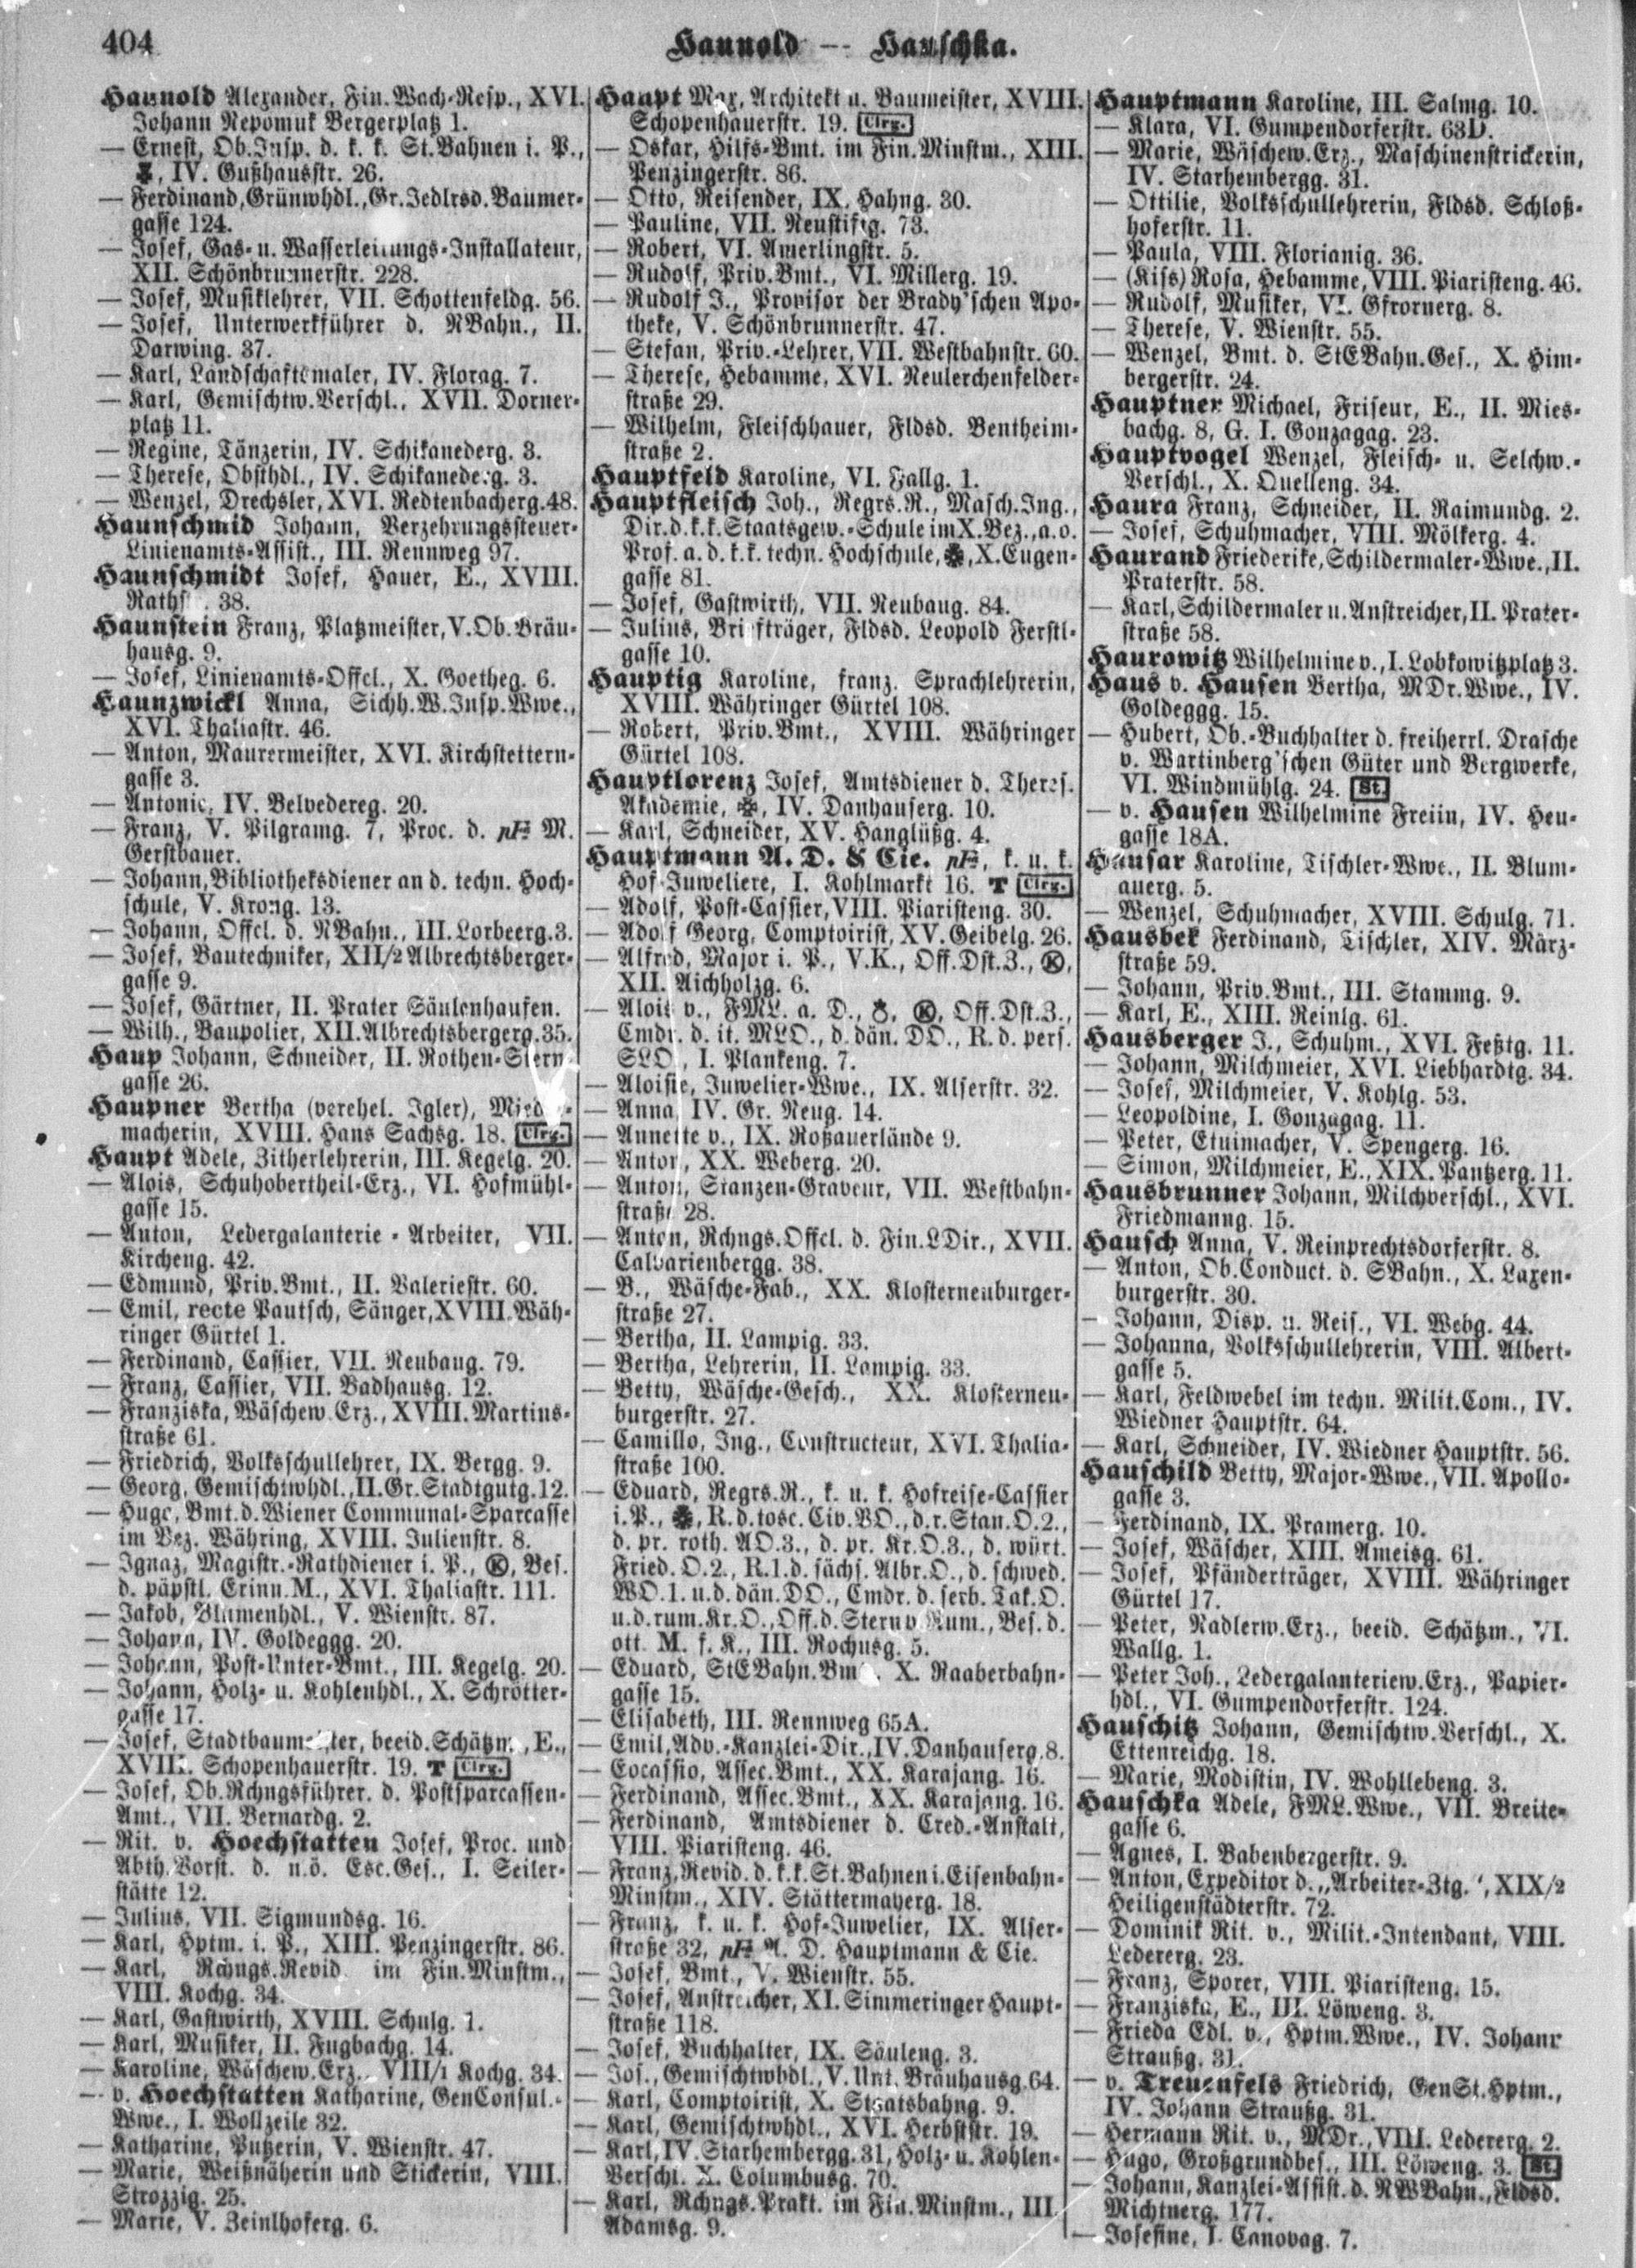 404
Haunold — Hauschka.
Haunold Alexander, Fin.Wach-Resp., XVI.
Johann Nepomuk Bergerplatz 1.
— Ernest, Ob.Insp. d. k. k. St.Bahnen i. P.,
, IV. Gußhausstr. 26.
— Ferdinand, Grünwhdl., Gr.Jedlrsd. Baumer-
gasse 124.
— Josef, Gas- u. Wasserleitungs-Installateur,
XII. Schönbrunnerstr. 228.
— Josef, Musiklehrer, VII. Schottenfeldg. 56.
— Josef, Unterwerkführer d. NBahn., II.
Darwing. 37.
— Karl, Landschaftsmaler, IV. Florag. 7.
— Karl, Gemischtw.Verschl., XVII. Dorner-
platz 11.
— Regine, Tänzerin, IV. Schikanederg. 3.
— Therese, Obsthdl., IV. Schikanederg. 3.
— Wenzel, Drechsler, XVI. Redtenbacherg. 48.
Haunschmid Johann, Verzehrungssteuer-
Linienamts-Assist., III. Rennweg 97.
Haunschmidt Josef, Hauer, E., XVIII.
38.
Haunstein Franz, Platzmeister, V. Ob. Bräu-
hausg. 9.
— Josef, Linienamts-Offcl., X. Goetheg. 6.
Haunzwickl Anna, Sichh.W.Insp.Wwe.,
XVI. Thaliastr. 46.
— Anton, Maurermeister, XVI. Kirchstettern-
gasse 3.
— Antonie, IV. Belvedereg. 20.
— Franz, V. Pilgramg. 7, Proc. d. pF M.
Gerstbauer.
— Johann, Bibliotheksdiener an d. techn. Hoch-
schule, V. Krong. 13.
— Johann, Offcl. d. NBahn., III. Lorbeerg. 3.
— Josef, Bautechniker, XII/2 Albrechtsberger-
gasse 9.
— Josef, Gärtner, II. Prater Säulenhaufen.
— Wilh., Baupolier, XII. Albrechtsbergerg. 35.
Haup Johann, Schneider, II. Rothen-Stern-
gasse 26.
Haupner Bertha (verehel. Igler), Mieder-
macherin, XVIII. Hans Sachsg. 18. Clrg.
Haupt Adele, Zitherlehrerin, III. Kegelg. 20.
— Alois, Schuhobertheil-Erz., VI. Hofmühl-
gasse 15.
— Anton, Ledergalanterie - Arbeiter, VII.
Kircheng. 42.
— Edmund, Priv.Bmt., II. Valeriestr. 60.
— Emil, recte Pautsch, Sänger, XVIII. Wäh-
ringer Gürtel 1.
— Ferdinand, Cassier, VII. Neubaug. 79.
— Franz, Cassier, VII. Badhausg. 12.
— Franziska, Wäschew.Erz., XVIII. Martins-
straße 61.
— Friedrich, Volksschullehrer, IX. Bergg. 9.
— Georg, Gemischtwhdl., II. Gr. Stadtgutg. 12.
— Hugo, Bmt. d. Wiener Communal-Sparcasse
im Bez. Währing, XVIII. Julienstr. 8.
— Ignaz, Magistr.-Rathdiener i. P., Ⓚ, Bes.
d. päpstl. Erinn.M., XVI. Thaliastr. 111.
— Jakob, Blumenhdl., V. Wienstr. 87.
— Johann, IV. Goldeggg. 20.
— Johann, Post-Unter-Bmt., III. Kegelg. 20.
— Johann, Holz- u. Kohlenhdl., X. Schrötter-
gasse 17.
— Josef, Stadtbaumeister, beeid. Schätzm., E.,
XVIII. Schopenhauerstr. 19. T Clrg.
— Josef, Ob.Rchngsführer. d. Postsparcassen-
Amt., VII. Bernardg. 2.
— Rit. v. Hoechstatten Josef, Proc. und
Abth.Vorst. d. n.ö. Esc.Ges., I. Seiler-
stätte 12.
— Julius, VII. Sigmundsg. 16.
— Karl, Hptm. i. P., XIII. Penzingerstr. 86.
— Karl, Rchngs.Revid. im Fin.Minstm.,
VIII. Kochg. 34.
— Karl, Gastwirth, XVIII. Schulg. 1.
— Karl, Musiker, II. Fugbachg. 14.
— Karoline, Wäschew.Erz., VIII/1 Kochg. 34.
— v. Hoechstatten Katharine, GenConsul.-
Wwe., I. Wollzeile 32.
— Katharine, Putzerin, V. Wienstr. 47.
— Marie, Weißnäherin und Stickerin, VIII.
Strozzig. 25.
— Marie, V. Zeinlhoferg. 6.
Haupt Max, Architekt u. Baumeister, XVIII.
Schopenhauerstr. 19. Clrg.
— Oskar, Hilfs-Bmt. im Fin.Minstm., XIII.
Penzingerstr. 86.
— Otto, Reisender, IX. Hahng. 30.
— Pauline, VII. Neustiftg. 73.
— Robert, VI. Amerlingstr. 5.
— Rudolf, Priv.Bmt., VI. Millerg. 19.
— Rudolf J., Provisor der Brady'schen Apo-
theke, V. Schönbrunnerstr. 47.
— Stefan, Priv.-Lehrer, VII. Westbahnstr. 60.
— Therese, Hebamme, XVI. Neulerchenfelder-
straße 29.
— Wilhelm, Fleischhauer, Fldsd. Bentheim-
straße 2.
Hauptfeld Karoline, VI. Fallg. 1.
Hauptfleisch Joh., Regrs.R., Masch.Ing.,
Dir. d. k. k. Staatsgew.-Schule im X. Bez., a. o.
Prof. a. d. k. k. techn. Hochschule, , X. Eugen-
gasse 81.
— Josef, Gastwirth, VII. Neubaug. 84.
— Julius, Briefträger, Fldsd. Leopold Ferstl-
gasse 10.
Hauptig Karoline, franz. Sprachlehrerin,
XVIII. Währinger Gürtel 108.
— Robert, Priv.Bmt., XVIII. Währinger
Gürtel 108.
Hauptlorenz Josef, Amtsdiener d. Theres.
Akademie, , IV. Danhauserg. 10.
— Karl, Schneider, XV. Hanglüßg. 4.
Hauptmann A. D. & Cie. pF, k. u. k.
Hof-Juweliere, I. Kohlmarkt 16. T Clrg.
— Adolf, Post-Cassier, VIII. Piaristeng. 30.
— Adolf Georg, Comptoirist, XV. Geibelg. 26.
— Alfred, Major i. P., V.K., Off.Dst.Z., Ⓚ,
XII. Aichholzg. 6.
— Alois v., FML. a. D., , Ⓚ, Off.Dst.Z.,
Cmdr. d. it. MLO., d. dän. DO., R. d. pers.
SLO., I. Plankeng. 7.
— Aloisie, Juwelier-Wwe., IX. Alserstr. 32.
— Anna, IV. Gr. Neug. 14.
— Annette v., IX. Roßauerlände 9.
— Anton, XX. Weberg. 20.
— Anton, Stanzen-Graveur, VII. Westbahn-
straße 28.
— Anton, Rchngs.Offcl. d. Fin.LDir., XVII.
Calvarienbergg. 38.
— B., Wäsche-Fab., XX. Klosterneuburger-
straße 27.
— Bertha, II. Lampig. 33.
— Bertha, Lehrerin, II. Lampig. 33.
— Betty, Wäsche-Gesch., XX. Klosterneu-
burgerstr. 27.
— Camillo, Ing., Constructeur, XVI. Thalia-
straße 100.
— Eduard, Regrs.R., k. u. k. Hofreise-Cassier
i. P., , R. d. tosc. Civ.VO., d. r. Stan.O.2.,
d. pr. roth. AO.3., d. pr. Kr.O.3., d. würt.
Fried.O.2., R.1. d. sächs. Albr.O., d. schwed.
WO.1. u. d. dän. DO., Cmdr. d. serb. Tak.O.
u. d. rum. Kr.O., Off. d. Stern v. Rum., Bes. d.
ott. M. f. K., III. Rochusg. 5.
— Eduard, StEBahn.Bmt., X. Raaberbahn-
gasse 15.
— Elisabeth, III. Rennweg 65A.
— Emil, Adv.-Kanzlei-Dir., IV. Danhauserg. 8.
— Eocassio, Assec.Bmt., XX. Karajang. 16.
— Ferdinand, Assec.Bmt., XX. Karajang. 16.
— Ferdinand, Amtsdiener d. Cred.-Anstalt,
VIII. Piaristeng. 46.
— Franz, Revid. d. k. k. St.Bahnen i. Eisenbahn-
Minstm., XIV. Stättermayerg. 18.
— Franz, k. u. k. Hof-Juwelier, IX. Alser-
straße 32, pF A. D. Hauptmann & Cie.
— Josef, Bmt., V. Wienstr. 55.
— Josef, Anstreicher, XI. Simmeringer Haupt-
straße 118.
— Josef, Buchhalter, IX. Säuleng. 3.
— Jos., Gemischtwhdl., V. Unt. Bräuhausg. 64.
— Karl, Comptoirist, X. Staatsbahng. 9.
— Karl, Gemischtwhdl., XVI. Herbststr. 19.
— Karl, IV. Starhembergg. 31, Holz- u. Kohlen-
Verschl. X. Columbusg. 70.
— Karl, Rchngs.Prakt. im Fin.Minstm., III.
Adamsg. 9.
Hauptmann Karoline, III. Salmg. 10.
— Klara, VI. Gumpendorferstr. 63D.
— Marie, Wäschew.Erz., Maschinenstrickerin,
IV. Starhembergg. 31.
— Ottilie, Volksschullehrerin, Fldsd. Schloß-
hoferstr. 11.
— Paula, VIII. Florianig. 36.
— (Kiss) Rosa, Hebamme, VIII. Piaristeng. 46.
— Rudolf, Musiker, VI. Gfrornerg. 8.
— Therese, V. Wienstr. 55.
— Wenzel, Bmt. d. StEBahn.Ges., X. Him-
bergerstr. 24.
Hauptner Michael, Friseur, E., II. Mies-
bachg. 8, G. I. Gonzagag. 23.
Hauptvogel Wenzel, Fleisch- u. Selchw.-
Verschl., X. Quelleng. 34.
Haura Franz, Schneider, II. Raimundg. 2.
— Josef, Schuhmacher, VIII. Mölkerg. 4.
Haurand Friederike, Schildermaler-Wwe., II.
Praterstr. 58.
— Karl, Schildermaler u. Anstreicher, II. Prater-
straße 58.
Haurowitz Wilhelmine v., I. Lobkowitzplatz 3.
Haus v. Hausen Bertha, MDr.Wwe., IV.
Goldeggg. 15.
— Hubert, Ob.-Buchhalter d. freiherrl. Drasche
v. Wartinberg'schen Güter und Bergwerke,
VI. Windmühlg. 24. St.
— v. Hausen Wilhelmine Freiin, IV. Heu-
gasse 18A.
Hausar Karoline, Tischler-Wwe., II. Blum-
auerg. 5.
— Wenzel, Schuhmacher, XVIII. Schulg. 71.
Hausbek Ferdinand, Tischler, XIV. März-
straße 59.
— Johann, Priv.Bmt., III. Stammg. 9.
— Karl, E., XIII. Reinlg. 61.
Hausberger J., Schuhm., XVI. Feßtg. 11.
— Johann, Milchmeier, XVI. Liebhardtg. 34.
— Josef, Milchmeier, V. Kohlg. 53.
— Leopoldine, I. Gonzagag. 11.
— Peter, Etuimacher, V. Spengerg. 16.
— Simon, Milchmeier, E., XIX. Pantzerg. 11.
Hausbrunner Johann, Milchverschl., XVI.
Friedmanng. 15.
Hausch Anna, V. Reinprechtsdorferstr. 8.
— Anton, Ob.Conduct. d. SBahn., X. Laxen-
burgerstr. 30.
— Johann, Disp. u. Reis., VI. Webg. 44.
— Johanna, Volksschullehrerin, VIII. Albert-
gasse 5.
— Karl, Feldwebel im techn. Milit.Com., IV.
Wiedner Hauptstr. 64.
— Karl, Schneider, IV. Wiedner Hauptstr. 56.
Hauschild Betty, Major-Wwe., VII. Apollo-
gasse 3.
— Ferdinand, IX. Pramerg. 10.
— Josef, Wäscher, XIII. Ameisg. 61.
— Josef, Pfänderträger, XVIII. Währinger
Gürtel 17.
— Peter, Nadlerw.Erz., beeid. Schätzm., VI.
Wallg. 1.
— Peter Joh., Ledergalanteriew.Erz., Papier-
hdl., VI. Gumpendorferstr. 124.
Hauschitz Johann, Gemischtw.Verschl., X.
Ettenreichg. 18.
— Marie, Modistin, IV. Wohllebeng. 3.
Hauschka Adele, FML.Wwe., VII. Breite-
gasse 6.
— Agnes, I. Babenbergerstr. 9.
— Anton, Expeditor d. „Arbeiter-Ztg.", XIX/2
Heiligenstädterstr. 72.
— Dominik Rit. v., Milit.-Intendant, VIII.
Ledererg. 23.
— Franz, Sporer, VIII. Piaristeng. 15.
— Franziska, E., III. Löweng. 3.
— Frieda Edl. v., Hptm.Wwe., IV. Johann
Straußg. 31.
— v. Treuenfels Friedrich, GenSt.Hptm.,
IV. Johann Straußg. 31.
— Hermann Rit. v., MDr., VIII. Ledererg. 2.
— Hugo, Großgrundbes., III. Löweng. 3. St.
— Johann, Kanzlei-Assist. d. NWBahn., Fldsd.
Michtnerg. 177.
— Josefine, I. Canovag. 7.